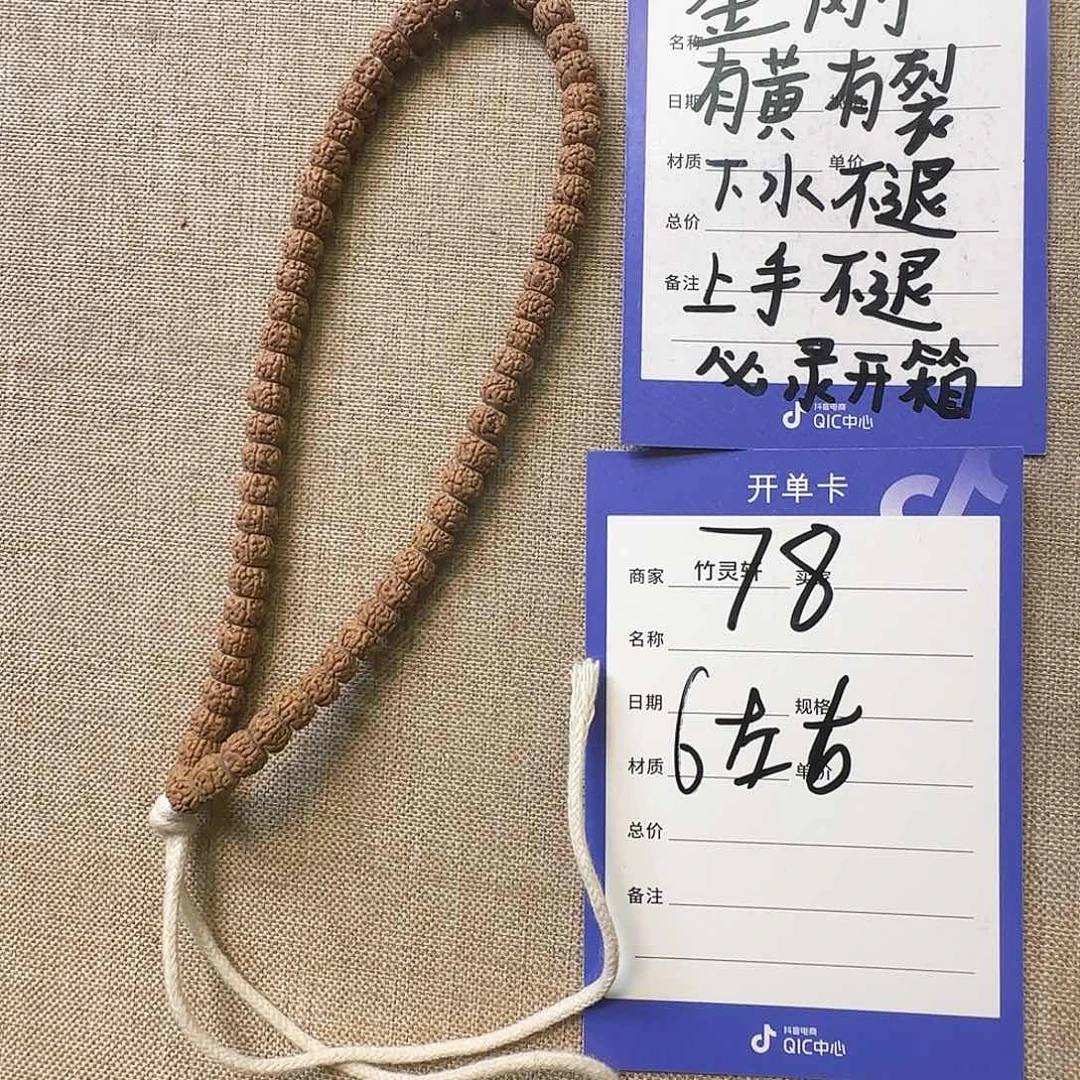 金刚
名称
有黄有裂
日期
下水不退
材质 单价
总价
上手不退
备注
必录开箱
抖音电商
QIC中心
开单卡
78
商家 竹灵轩 买家
名称
6左右
日期 规格
材质 单价
总价
备注
抖音电商
QIC中心